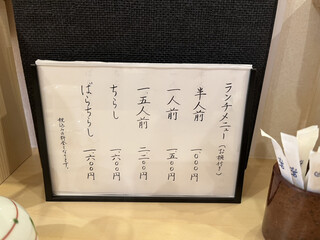 ランチメニュー（お椀付き）
半人前 一〇〇〇円
一人前 一五〇〇円
一五人前 二二〇〇円
ちらし 一六〇〇円
ばらちらし 一六〇〇円